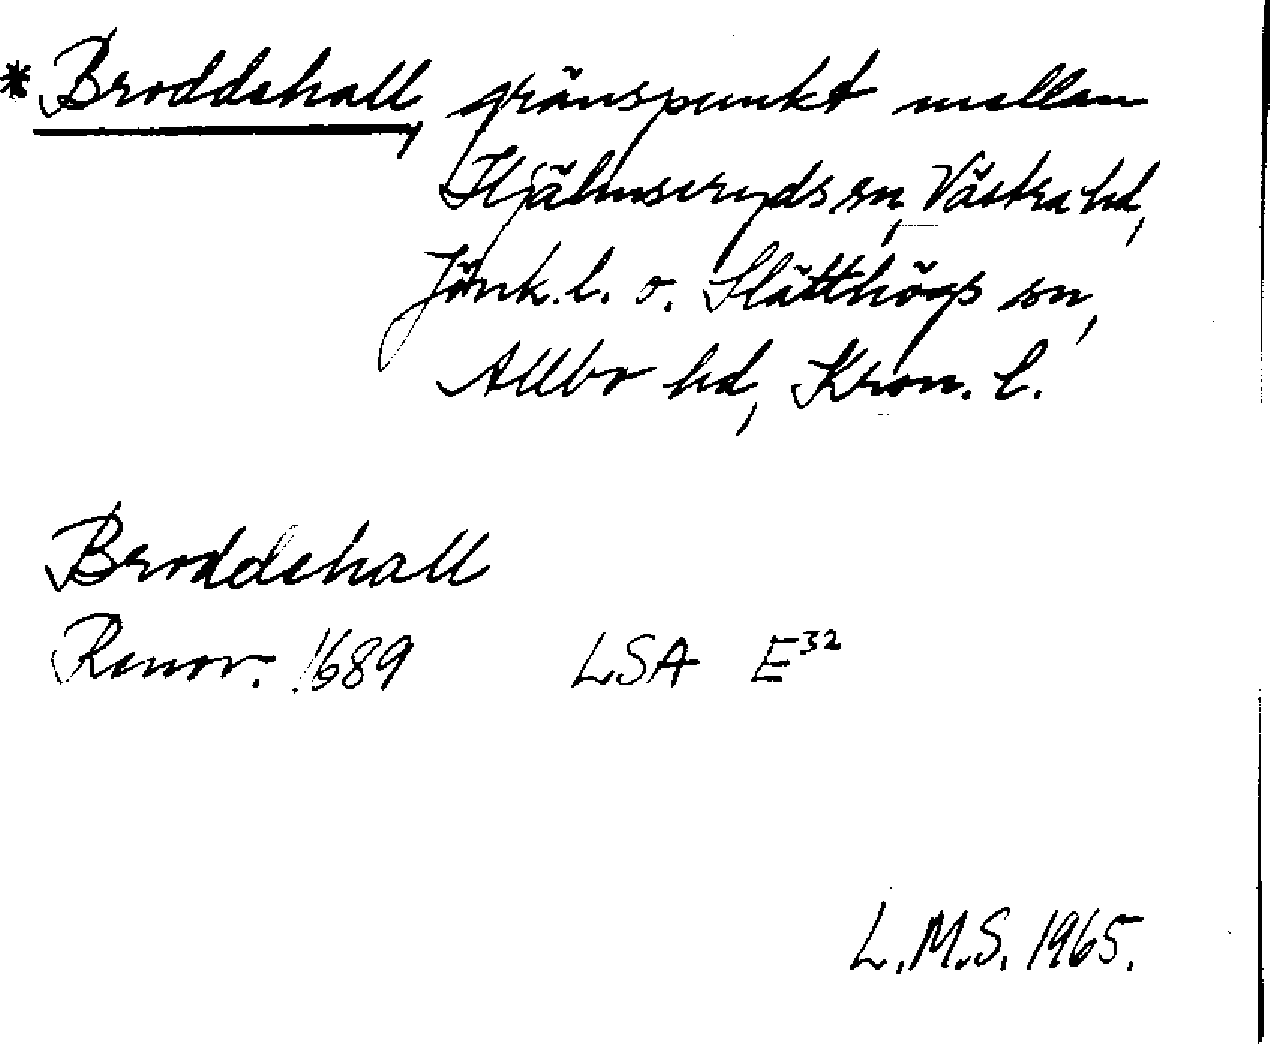 * Broddehall, gränspunkt mellan
Hjälmseryds sn, Västra hd,
Jönk. l. o. Slätthögs sn,
Allbo hd, Kron. l.
Broddehall
Renov. 1689 LSA E³²
L.M.S. 1965.